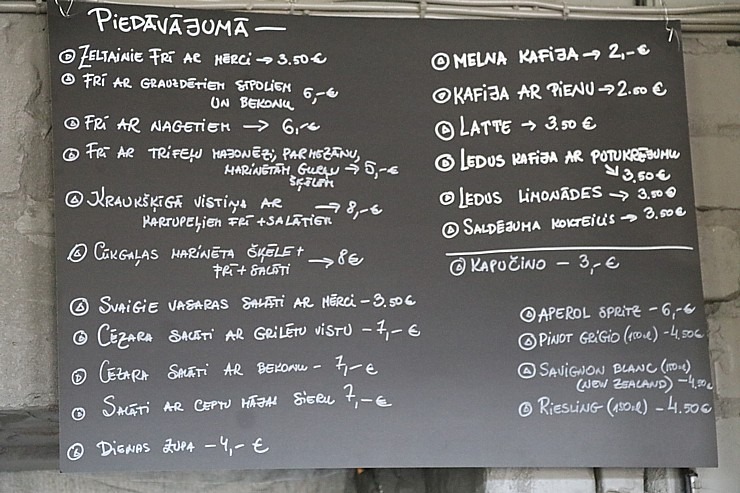 PIEDĀVĀJUMĀ —
ZELTAINIE FRĪ AR MĒRCI → 3.50 €
FRĪ AR GRAUZDĒTIEM SĪPOLIEM
UN BEKONU 6,-€
FRĪ AR NAGETIEM → 6,-€
FRĪ AR TRIFEĻU MAJONĒZI, PARMEZĀNU,
MARINĒTĀM GURĶU → 5,-€
ŠĶĒLĒM
KRAUKŠĶĪGĀ VISTIŅA AR → 8,-€
KARTUPEĻIEM FRĪ + SALĀTIEM
CŪKGAĻAS MARINĒTA ŠĶĒLE +
FRĪ + SALĀTI → 8€
SVAIGIE VASARAS SALĀTI AR MĒRCI - 3.50€
CĒZARA SALĀTI AR GRILĒTU VISTU - 7,-€
CĒZARA SALĀTI AR BEKONU - 7,-€
SALĀTI AR CEPTU MĀJAS SIERU 7,-€
DIENAS ZUPA - 4,- €
MELNA KAFIJA → 2,-€
KAFIJA AR PIENU → 2.50 €
LATTE → 3.50 €
LEDUS KAFIJA AR PUTUKRĒJUMU
↘ 3.50€
LEDUS LIMONĀDES → 3.50€
SALDĒJUMA KOKTEILIS → 3.50€
KAPUČINO - 3,-€
APEROL SPRITZ - 6,-€
PINOT GRIGIO (150ml) - 4.50€
SAVIGNON BLANC (150ml)
(NEW ZEALAND) - 4.50€
RIESLING (150ml) - 4.50€